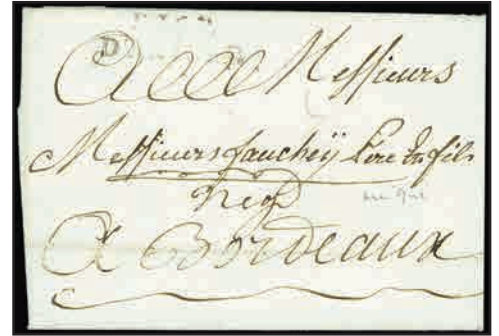 A Messieurs
Messieurs faucheÿ Pere & fils
Neg^ts
A Bordeaux